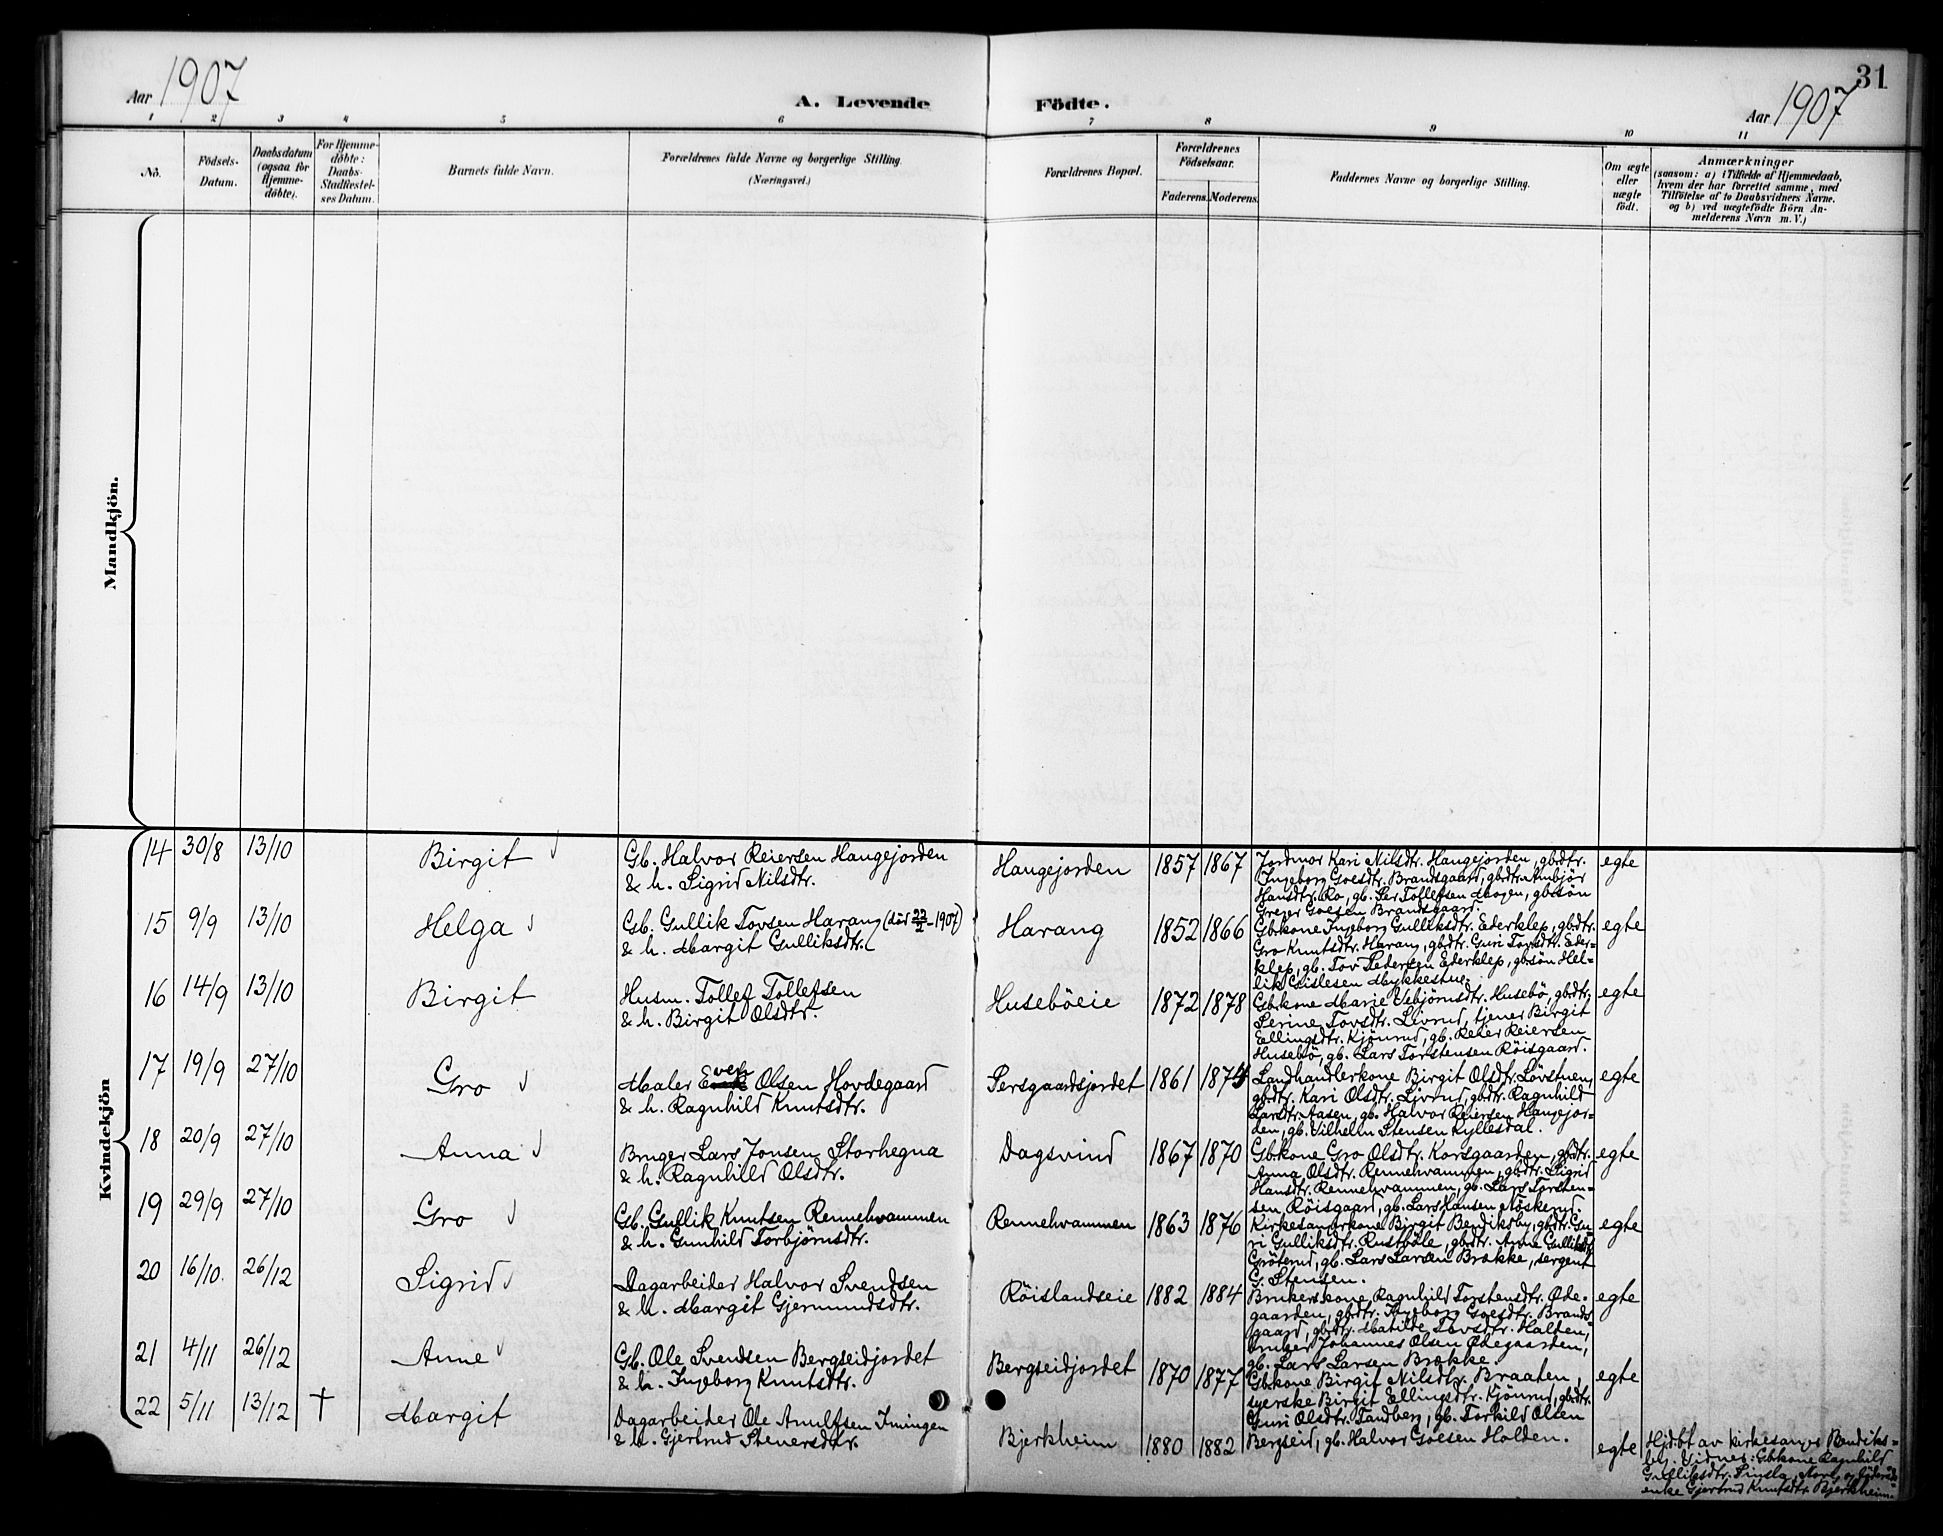 31
Aar 1907
A. Levende Födte.
Aar 1907
1 2 3 4 5 6 7 8 9 10 11
No.
Födsels-Datum.
Daabsdatum (ogsaa for Hjemme-döbte).
For Hjemme-döbte: Daabs-Stadfæstel-ses Datum.
Barnets fulde Navn.
Forældrenes fulde Navne og borgerlige Stilling.
(Næringsvei.)
Forældrenes Bopæl.
Forældrenes Födselsaar.
Faderens. Moderens.
Faddernes Navne og borgerlige Stilling.
Om ægte eller uægte födt.
Anmærkninger
(saasom: a) i Tilfælde af Hjemmedaab,
hvem der har forrettet samme, med
Tilföielse af to Daabsvidners Navne.
og b) ved uægtefödte Börn An-
melderens Navn m. V.)
Mandkjön.
Kvindekjön
14 30/8 13/10 Birgit
Gb. Halvor Reiersen Haugejorden
& h. Sigrid Nilsdtr.
Haugejorden 1857 1867
Jordmor Kari Nilsdtr. Haugejorden, gbdtr.
Ingeborg Goesdtr. Brandsgaard, gbdtr. Ambjör
Hansdtr. Ro, gb. Per Tollefsen Mogen, gbsön
Greger Goesen Brandsgaard.
egte
15 9/9 13/10 Helga
Gb. Gullik Tovsen Harang (död 22/2-1907)
& h. Margit Gulliksdtr.
Harang 1852 1866
Gbkone Ingeborg Gulliksdtr. Ederklep, gbdtr.
Gro Knutsdtr. Harang, gbdtr. Guri Tovsdtr. Eder-
klep, gb. Tov Pedersen Ederklep, gbsön Hel-
lik Gislesen Mykkestue.
egte
16 14/9 13/10 Birgit
Husm. Tollef Tollefsen
& h. Birgit Olsdtr.
Huseböeie 1872 1878
Gbkone Marie Vebjörnsdtr. Husebö, gbdtr.
Serine Tovsdtr. Livrud, tjener Birgit
Ellingsdtr. Kjönrud, gb. Reier Reiersen
Husebö, gb. Lars Torstensen Röisgaard.
egte
17 19/9 27/10 Gro
Maler Even Olsen Hovdegaard
& h. Ragnhild Knutsdtr.
Persgaardsjordet 1861 1874
Landhandlerkone Birgit Olsdtr. Lövstuen,
gbdtr. Kari Olsdtr. Livrud, gbdtr. Ragnhild
Larsdtr. Aasen, gb. Halvor Reiersen Haugejor-
den, gb. Vilhelm Stensen Kyllesdal.
egte
18 20/9 27/10 Anna
Bruger Lars Jonsen Storhegna
& h. Ragnhild Olsdtr.
Dagsvind 1867 1870
Gbkone Gro Olsdtr. Korsgaarden, gbdtr.
Anna Olsdtr. Rennehvammen, gbdtr. Sigrid
Hansdtr. Rennehvammen, gb. Lars Torsten-
sen Röisgaard, gb. Lars Hansen
egte
19 29/9 27/10 Gro
Gb. Gullik Knutsen Rennehvammen
& h. Gunhild Torbjörnsdtr.
Rennehvammen 1863 1876
Kirkesangerkone Birgit Bendiksby, gbdtr. Gu-
ri Gulliksdtr. Rustböle, gbdtr. Anne Gulliksdtr.
Gröterud, gb. Lars Larsen Brokke, sergent
G. Stensen.
egte
20 16/10. 26/12 Sigrid
Dagarbeider Halvor Svendsen
& h. Margit Gjermundsdtr.
Röislandseie 1882 1884
Brukerskone Ragnhild Torstensdtr. Öde-
gaarden, gbdtr. Ingeborg Goesdtr. Brands-
gaard, gbdtr. Matilde Tovsdtr. Halten,
bruger Johannes Olsen Ödegaarden,
gb. Lars Larsen Brokke.
egte
21 4/11 26/12 Anne
Gb. Ole Svendsen Bergseidjordet
& h. Ingeborg Knutsdtr.
Bergseidjordet 1870 1877
Gbkone Birgit Nilsdtr. Braaten,
syerske Birgit Ellingsdtr. Kjönrud, gbdtr.
Guri Olsdtr. Tandberg, gb. Torkild Olsen
Bergseid, gb. Halvor Goesen Holden.
egte
22 5/11 13/12 † Margit
Dagarbeider Ole Arnulfsen Imingen
& h. Gjertrud Stenersdtr.
Bjerkheim 1880 1882
egte
Hjdbt av kirkesanger Bendiks-
by. Vidner: Gbkone Ragnhild
Gulliksdtr.
enke Gjertrud Knutsdtr. Bjerkheim.